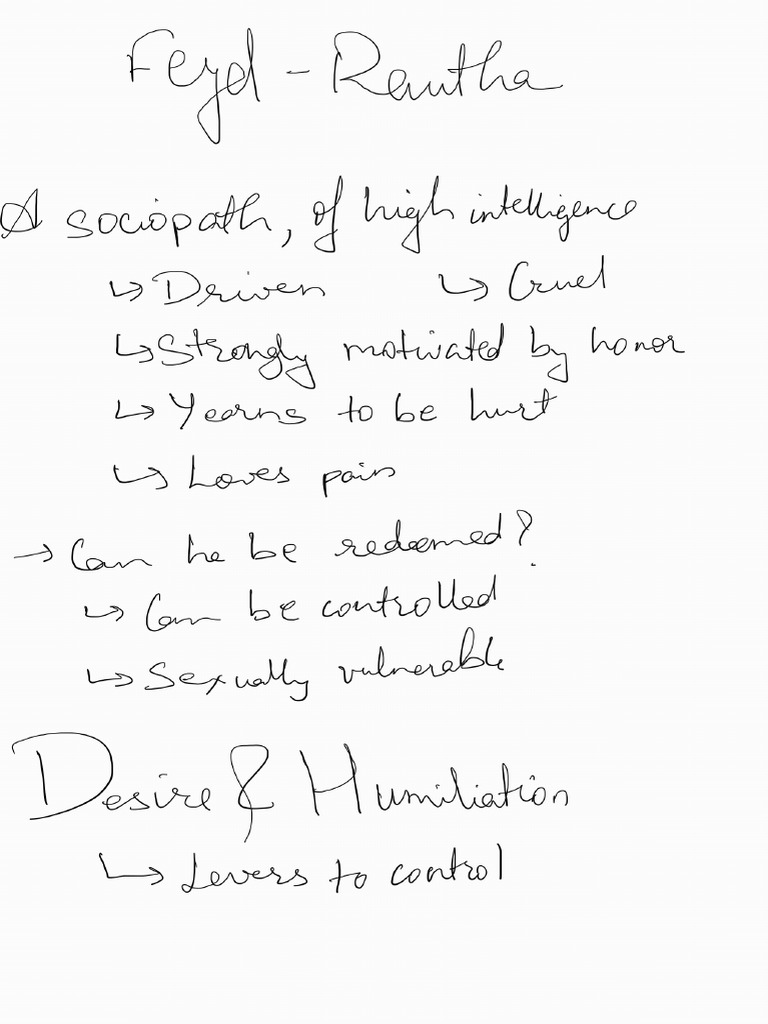 Feyd - Rautha
A sociopath, of high intelligence
↳ Driven ↳ Cruel
↳ Strongly motivated by honor
↳ Yearns to be hurt
↳ Loves pain
→ Can he be redeemed?
↳ Can be controlled
↳ Sexually vulnerable
Desire & Humiliation
↳ Levers to control